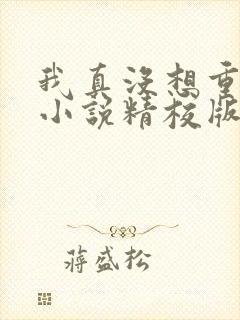 我真没想重
小说精校版
蒋盛松